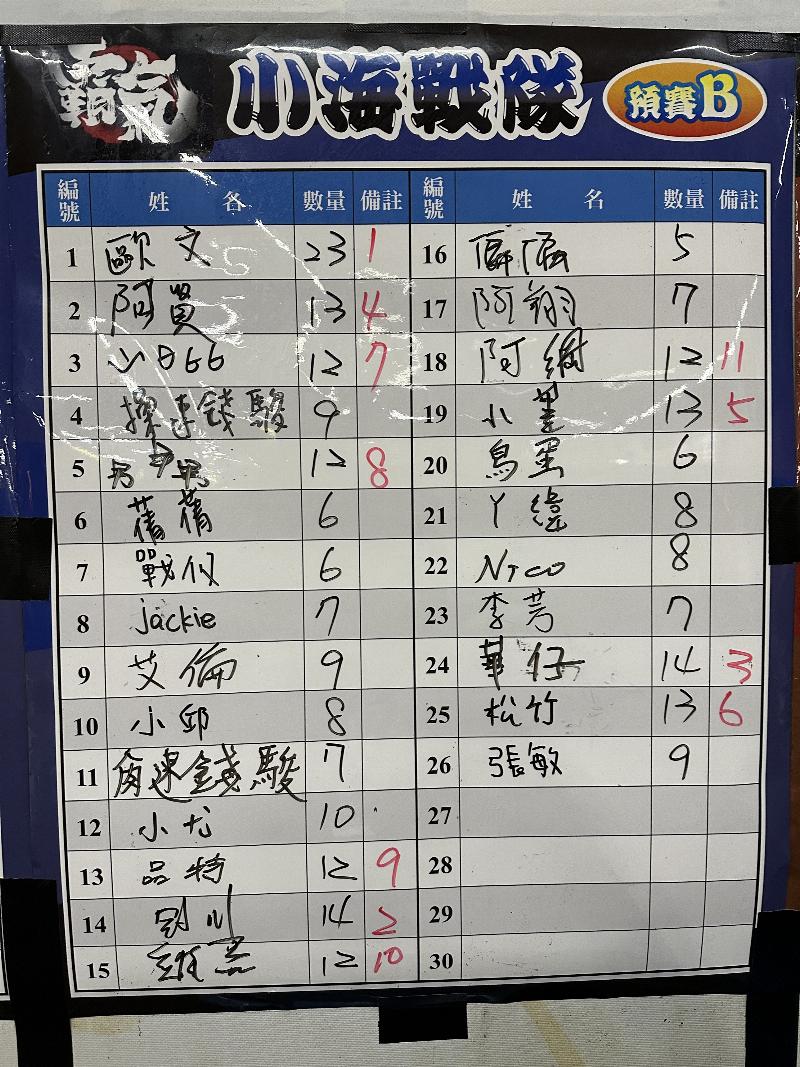 霸氣 小海戰隊 預賽B
編號 姓 名 數量 備註
1 歐文 23 1
2 阿賢 13 4
3 小D66 12 7
4 錢駿 9
5 12 8
6 蒨蒨 6
7 戰 6
8 jackie 7
9 艾倫 9
10 小邱 8
11 角速錢駿 7
12 小尤 10
13 品特 12 9
14 14 2
15 12 10
編號 姓 名 數量 備註
16 5
17 阿翔 7
18 阿 12 11
19 小 13 5
20 鳥蛋 6
21 丫緯 8
22 Nico 8
23 李芳 7
24 華仔 14 3
25 松竹 13 6
26 張敏 9
27
28
29
30